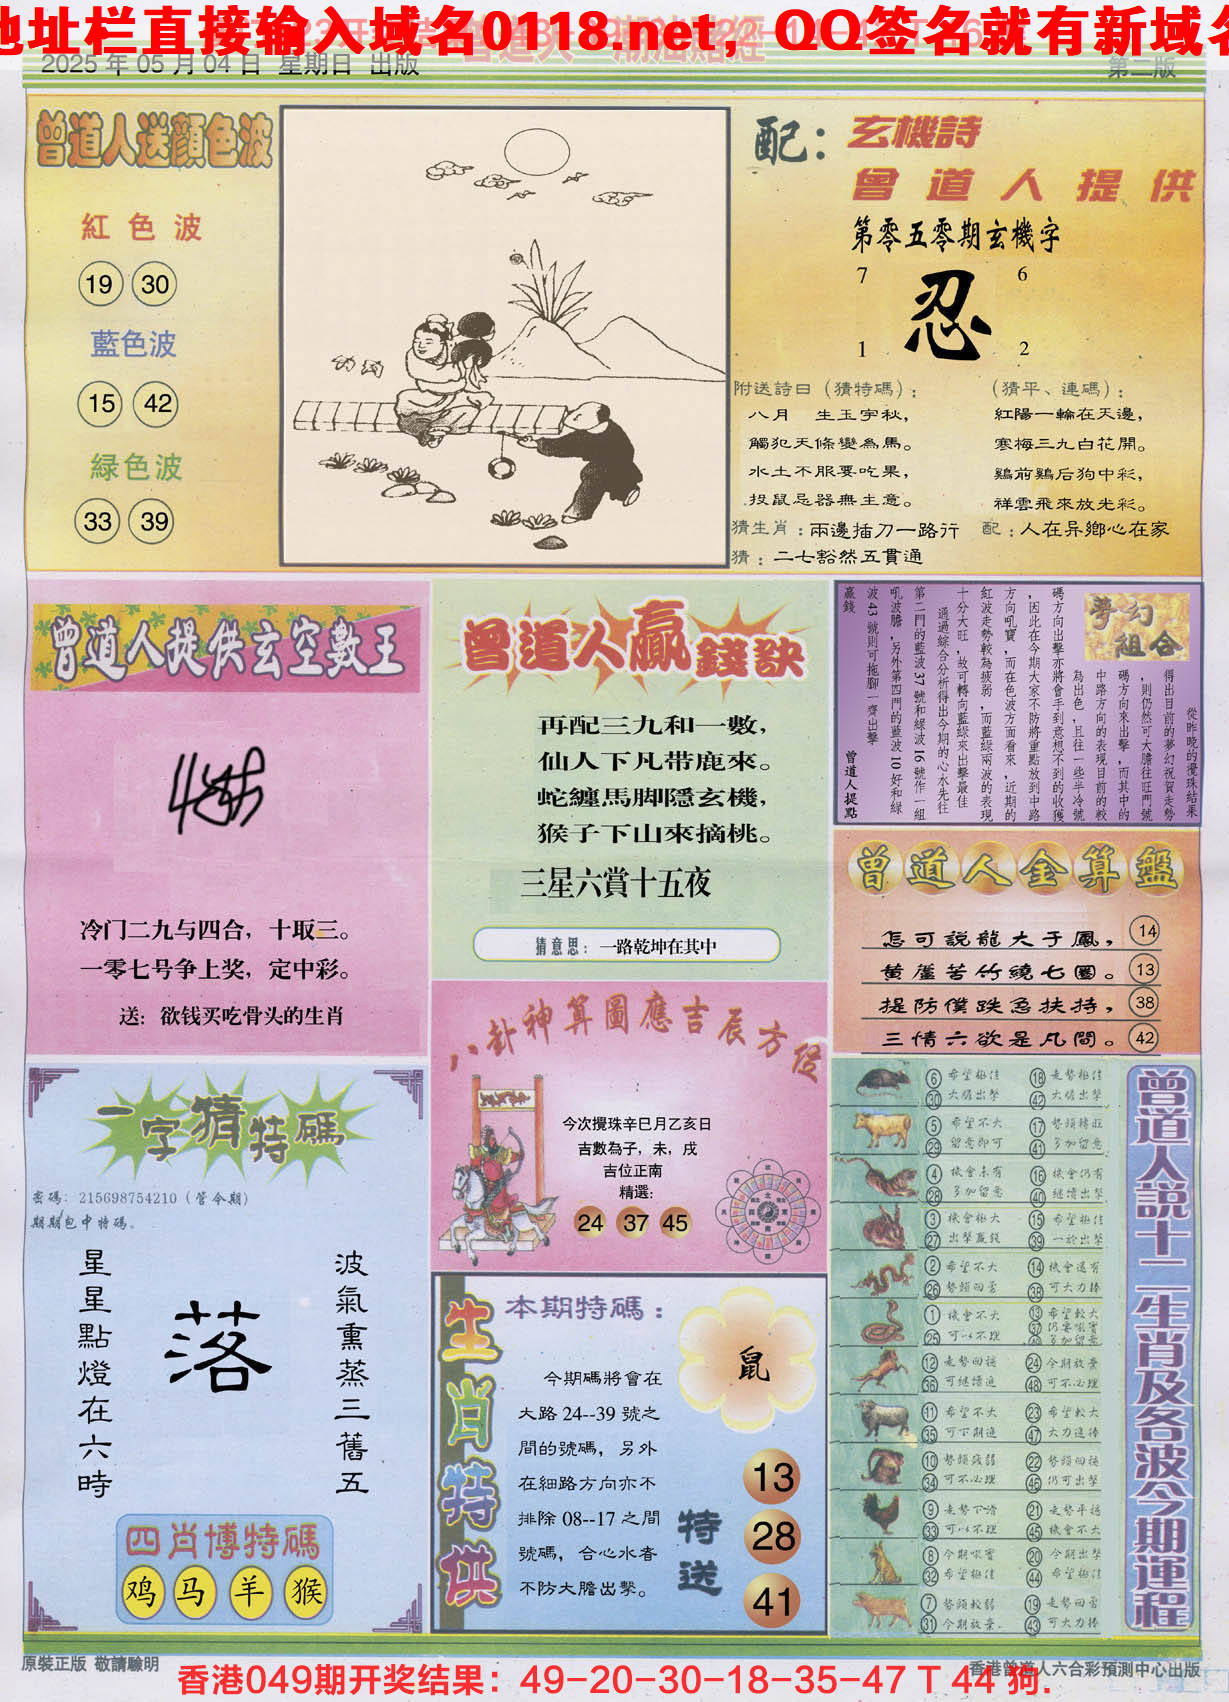 地址栏直接输入域名0118.net，QQ签名就有新域名
2025 年 05 月 04 日  星期日  出版
第二版
曾道人送顏色波
紅色波
19 30
藍色波
15 42
緑色波
33 39
配：玄機詩
曾道人提供
第零五零期玄機字
7 6
忍
1 2
附送詩曰（猜特碼）：
八月 生玉宇秋，
觸犯天條變為馬。
水土不服要吃果，
投鼠忌器無主意。
（猜平、連碼）：
紅陽一輪在天邊，
寒梅三九白花開。
鷄前鷄后狗中彩，
祥雲飛來放光彩。
猜生肖：兩邊插刀一路行
配：人在异鄉心在家
猜：二七豁然五貫通
曾道人提供玄空數王
冷门二九与四合，十取三。
一零七号争上奖，定中彩。
送：欲钱买吃骨头的生肖
曾道人贏錢訣
再配三九和一數，
仙人下凡带鹿來。
蛇纏馬脚隱玄機，
猴子下山來摘桃。
三星六賞十五夜
猜意思：一路乾坤在其中
夢幻組合
從昨晚的攪珠結果
得出目前的夢幻祝賀走勢
，則仍然可大膽往旺門號
碼方向來出擊，而其中的
中路方向的表現目前的較
為出色，且往一些半冷號
碼方向出擊亦將會手到意想不到的收獲
，因此在今期大家不防將重點放到中路
方向吼寶，而在色波方面看來，近期的
紅波走勢較為疲弱，而藍綠兩波的表現
十分大旺，故可轉向藍綠來出擊最佳
通過綜合分析得出今期的心水先往
第二門的藍波 37 號和綠波 16 號作一組
吼波膽，另外第四門的藍波 10 好和綠
波 43 號則可拖腳一齊出擊
贏錢
曾道人提點
曾道人金算盤
怎可說龍大于鳳， 14
黄蘆苦竹繞七圈。 13
提防僕跌急扶持， 38
三情六欲是凡間。 42
一字猜特碼
密碼：215698754210（管今期）
期期包中特碼。
星星點燈在六時
落
波氣熏蒸三舊五
四肖博特碼
鸡 马 羊 猴
八卦神算圖應吉辰方位
今次攪珠辛巳月乙亥日
吉數為子，未，戌
吉位正南
精選：
24 37 45
生肖特供
本期特碼：
鼠
今期碼將會在
大路 24--39 號之
間的號碼，另外
在細路方向亦不
排除 08--17 之間
號碼，合心水者
不防大膽出擊。
特送
13
28
41
曾道人說十二生肖及各波今期運程
6 希望極佳 18 走勢極佳
30 大膽出擊 42 大膽出擊
5 希望不大 17 勢頭轉旺
29 留意即可 41 多加留意
4 機會未有 16 機會仍有
28 多加留意 40 繼續出擊
3 機會極大 15 希望極佳
27 出擊贏錢 39 一於出擊
2 希望不大 14 機會還有
26 勢頭回落 38 可大力捧
1 機會不大 13 希望較大
25 可以不理
12 走勢回穩 24 今期放棄
36 可繼續追 48 可不必理
11 希望不大 23 希望較大
35 可下期追 47 大力追捧
10 勢頭疲弱 22 勢頭回穩
34 可不必理 46 仍可出擊
9 走勢下滑 21 走勢平穩
33 可以不理 45 機會不大
8 今期吸實 20 今期出擊
32 希望極佳 44 希望極佳
7 勢頭較弱 19 走勢回落
31 今期放棄. 43 可大力捧
原裝正版  敬請驗明
香港曾道人六合彩預測中心出版
香港049期开奖结果：49-20-30-18-35-47 T 44 狗.